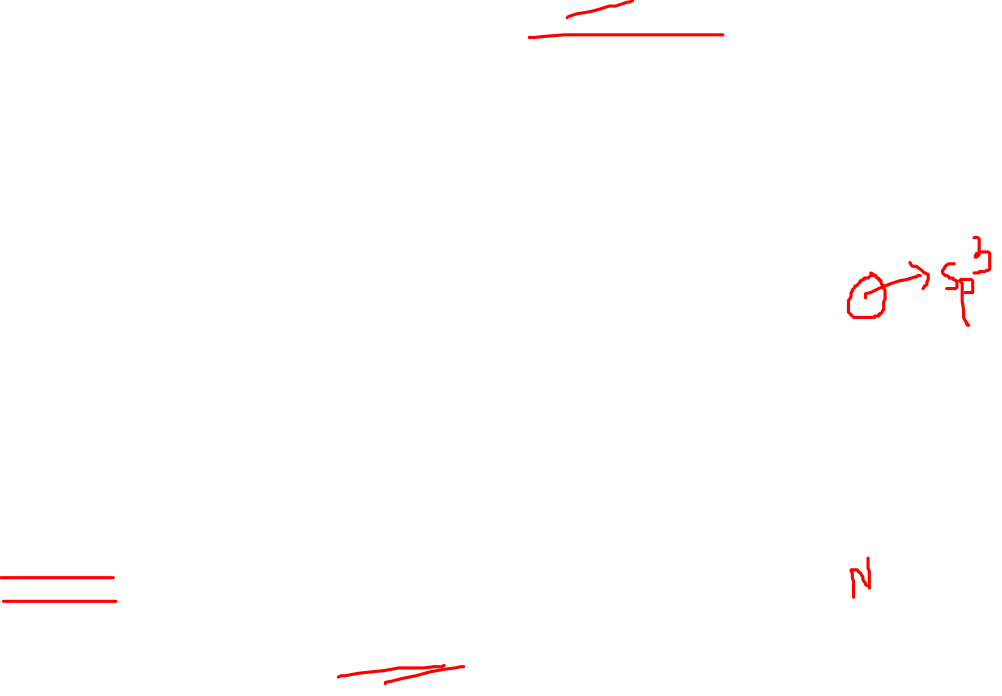 → sp³
N